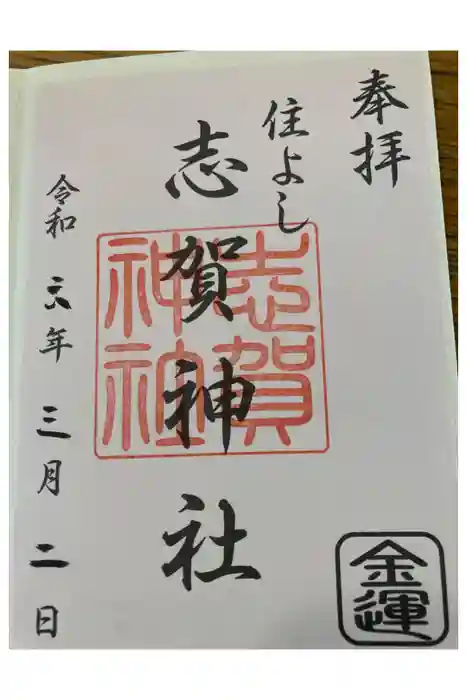 奉拝
住よし
志賀神社
志賀
神社
令和六年三月二日
金運